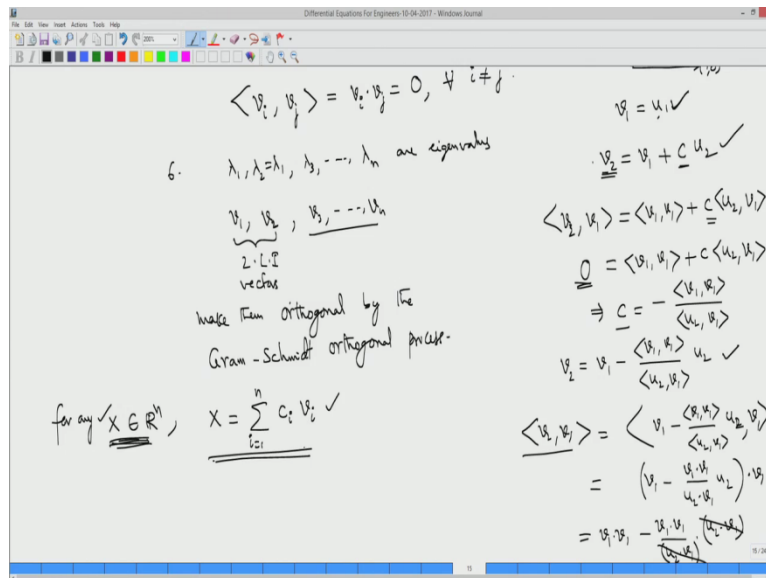 Differential Equations For Engineers-10-04-2017 - Windows Journal
File Edit View Insert Actions Tools Help
200%
B I
<v_i, v_j> = v_i · v_j = 0, ∀ i ≠ j.
6. λ_1, λ_2=λ_1, λ_3, ---, λ_n are eigenvalues
v_1, v_2, v_3, ---, v_n
2. L.I
vectors
make them orthogonal by the
Gram-Schmidt orthogonal process.
for any ✓ X ∈ ℝ^n, X = \sum_{i=1}^{n} c_i v_i ✓
v_1 = u_1 ✓
v_2 = v_1 + c u_2 ✓
<v_2, v_1> = <v_1, v_1> + c <u_2, v_1>
0 = <v_1, v_1> + c <u_2, v_1>
⇒ c = - <v_1, v_1> / <u_2, v_1>
v_2 = v_1 - <v_1, v_1> / <u_2, v_1> u_2 ✓
<v_2, v_1> = < v_1 - <v_1, v_1> / <u_2, v_1> u_2, v_1 >
= (v_1 - v_1·v_1 / u_2·v_1 u_2) · v_1
= v_1·v_1 - v_1·v_1 / (u_2·v_1) · (u_2·v_1)
15
15 / 24